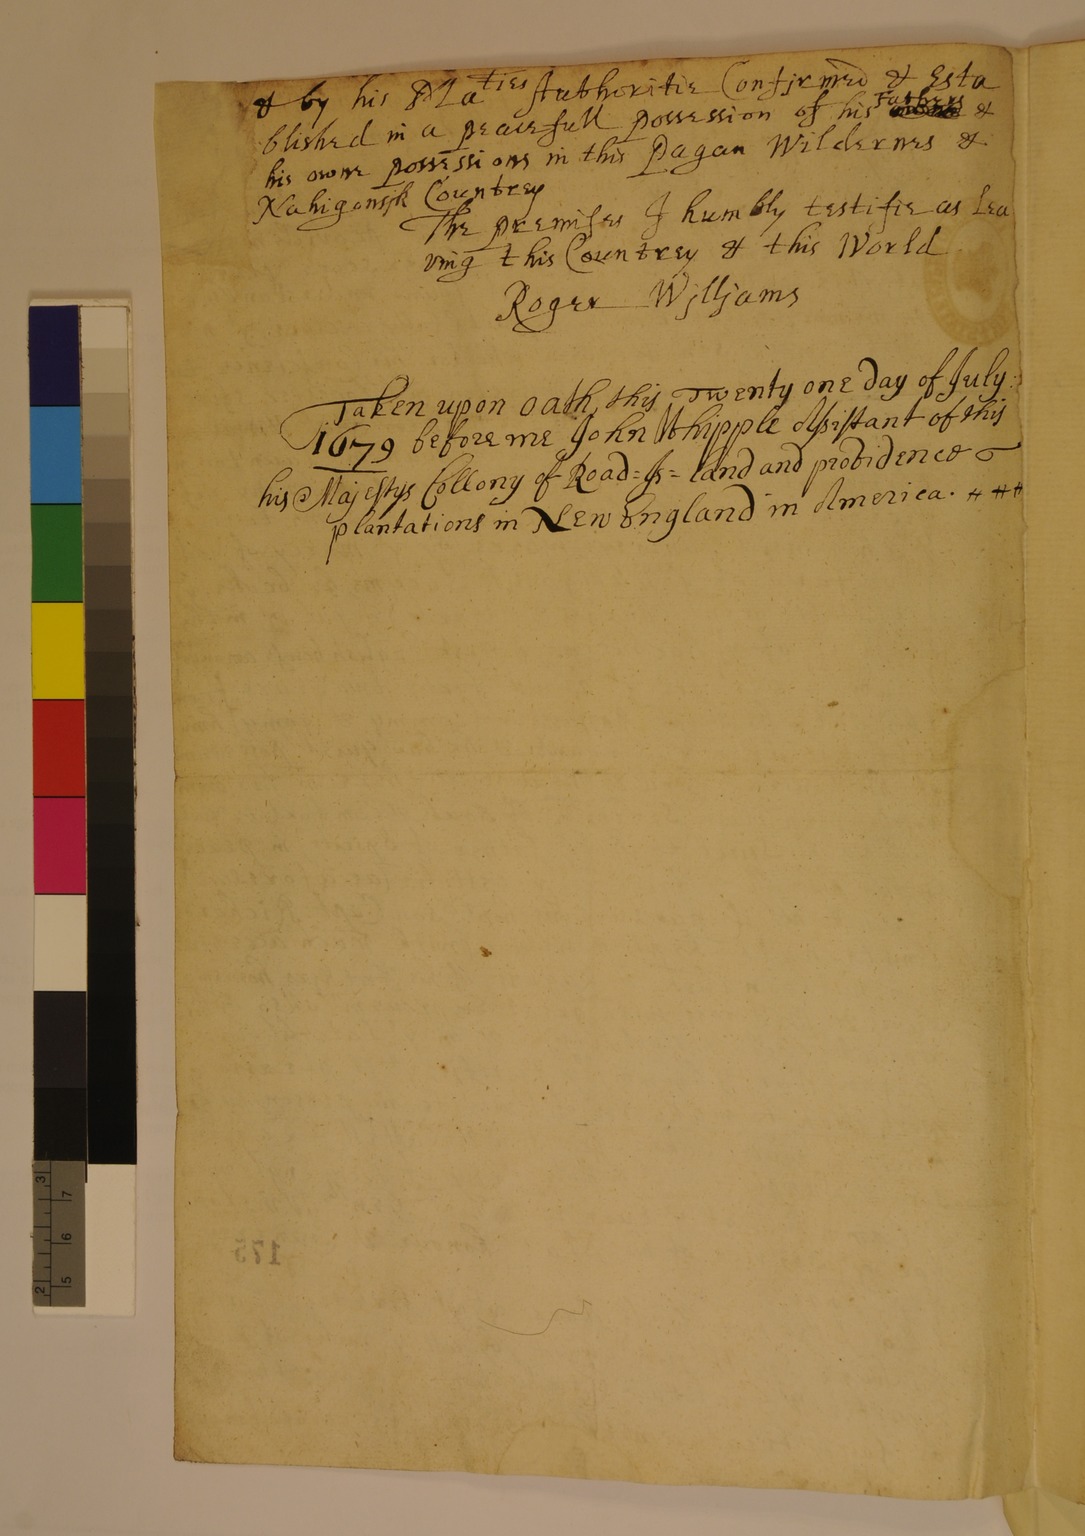 & by his Maties Authoritie Confirmed & Esta
blished in a peacefull possession of his Fathers &
his owne possessions in this Pagan Wildernes &
Nahigonsik Countrey
The premises I humbly testifie as Lea
ving this Countrey & this World
Roger Williams
Taken upon oath, this Twenty one day of July:
1679 before me John Whipple Assistant of this
his Majestys Collony of Road=Is=land and providence
plantations in New England in America.
175